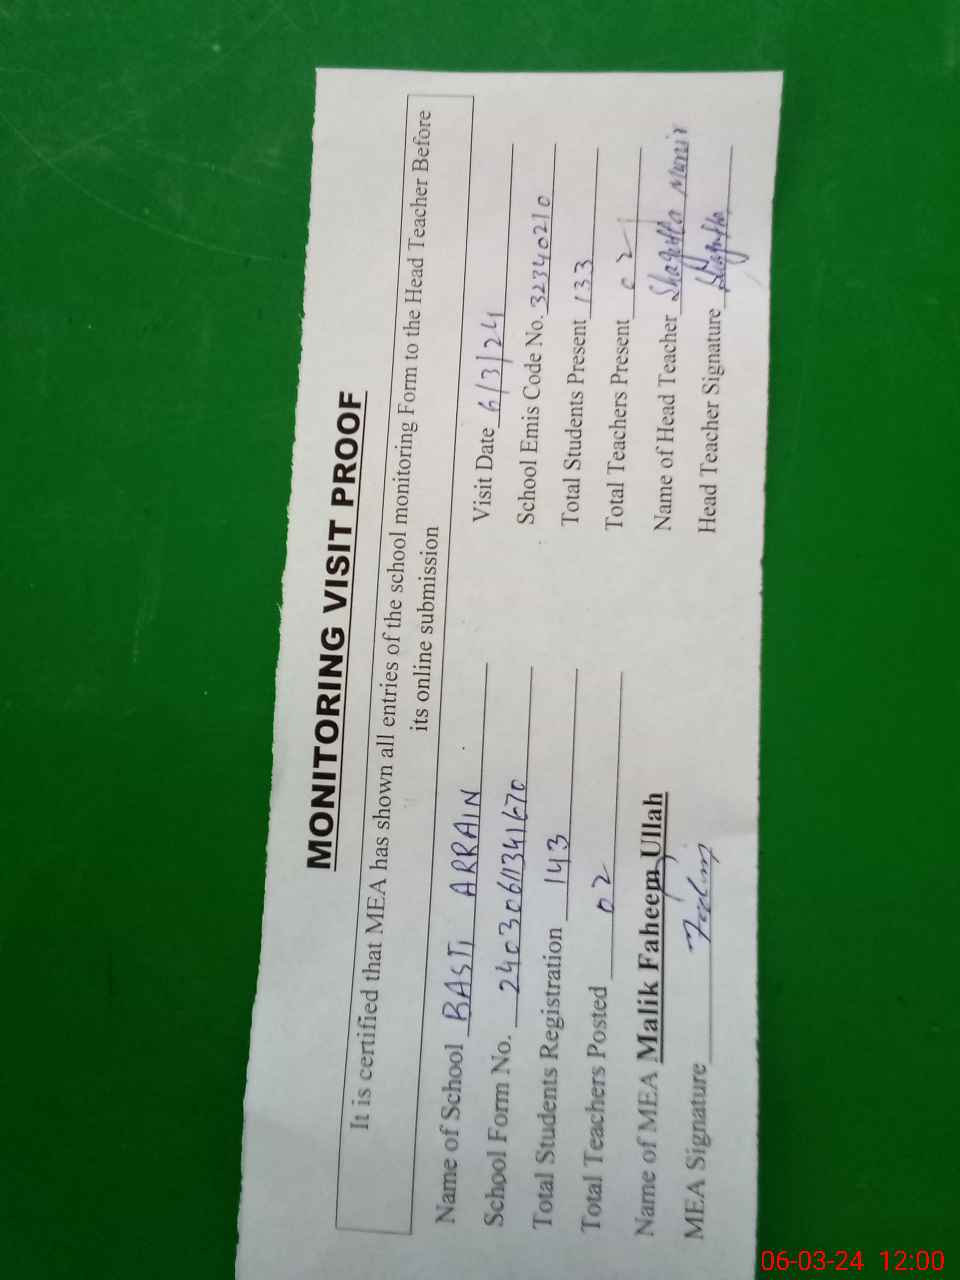 MONITORING VISIT PROOF
It is certified that MEA has shown all entries of the school monitoring Form to the Head Teacher Before
its online submission
Name of School BASTI ARRAIN
Visit Date 6/3/24
School Form No. 24030611341670
School Emis Code No. 32340210
Total Students Registration 143
Total Students Present 133
Total Teachers Posted 02
Total Teachers Present 02
Name of MEA Malik Faheem Ullah
Name of Head Teacher Shagufta Munir
MEA Signature Fahim
Head Teacher Signature Shagufta
06-03-24 12:00